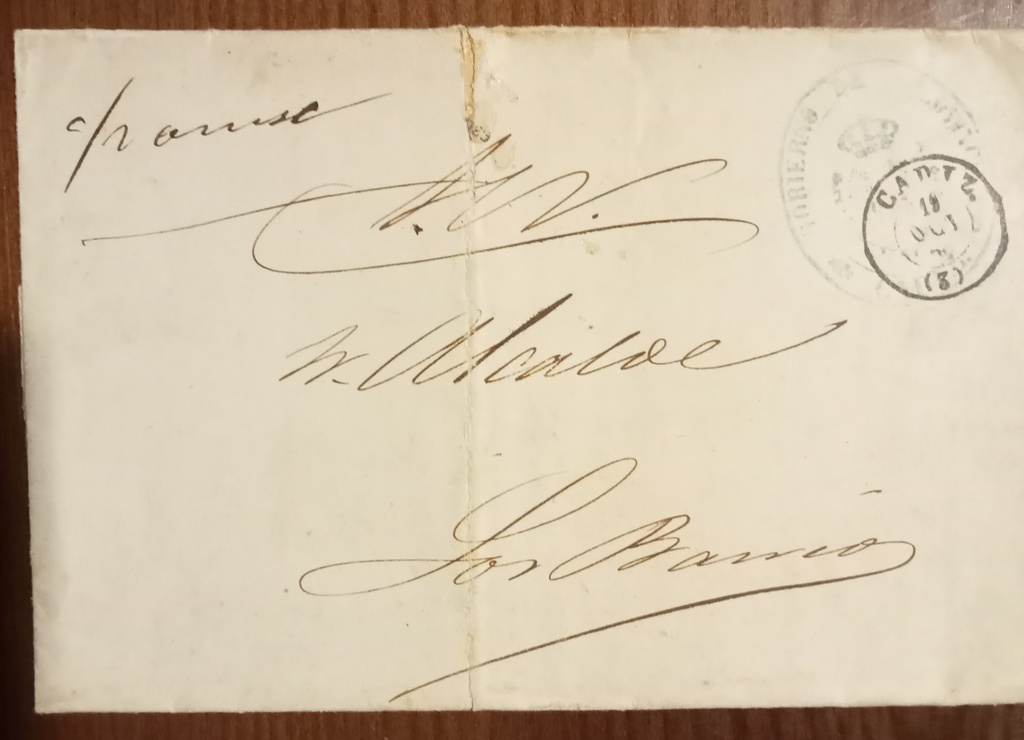 S. N.
Sr. Alcalde
Los Barrios
GOBIERNO DE
CADIZ
18
OCT
(3)